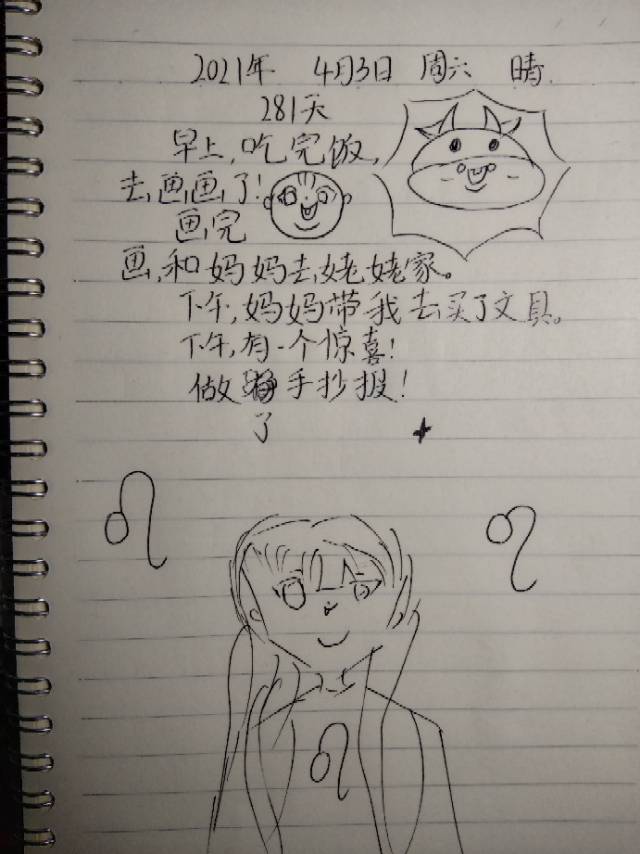 2021年 4月3日 周六 晴
281天
早上,吃完饭,
去,画,画,了!
画,完
画,和妈妈去,姥姥家。
下午,妈妈带我去买了文具。
下午,有一个惊喜!
做手抄报!
了